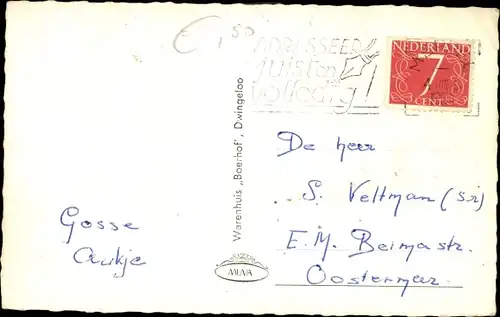 ADRESSEER
juist en
volledig!
NEDERLAND
7
CENT
De heer
S. Veltman (sr)
E. M. Beimastr.
Oostermeer.
Gosse
Aukje
Warenhuis „Boerhof", Dwingeloo
MUVA